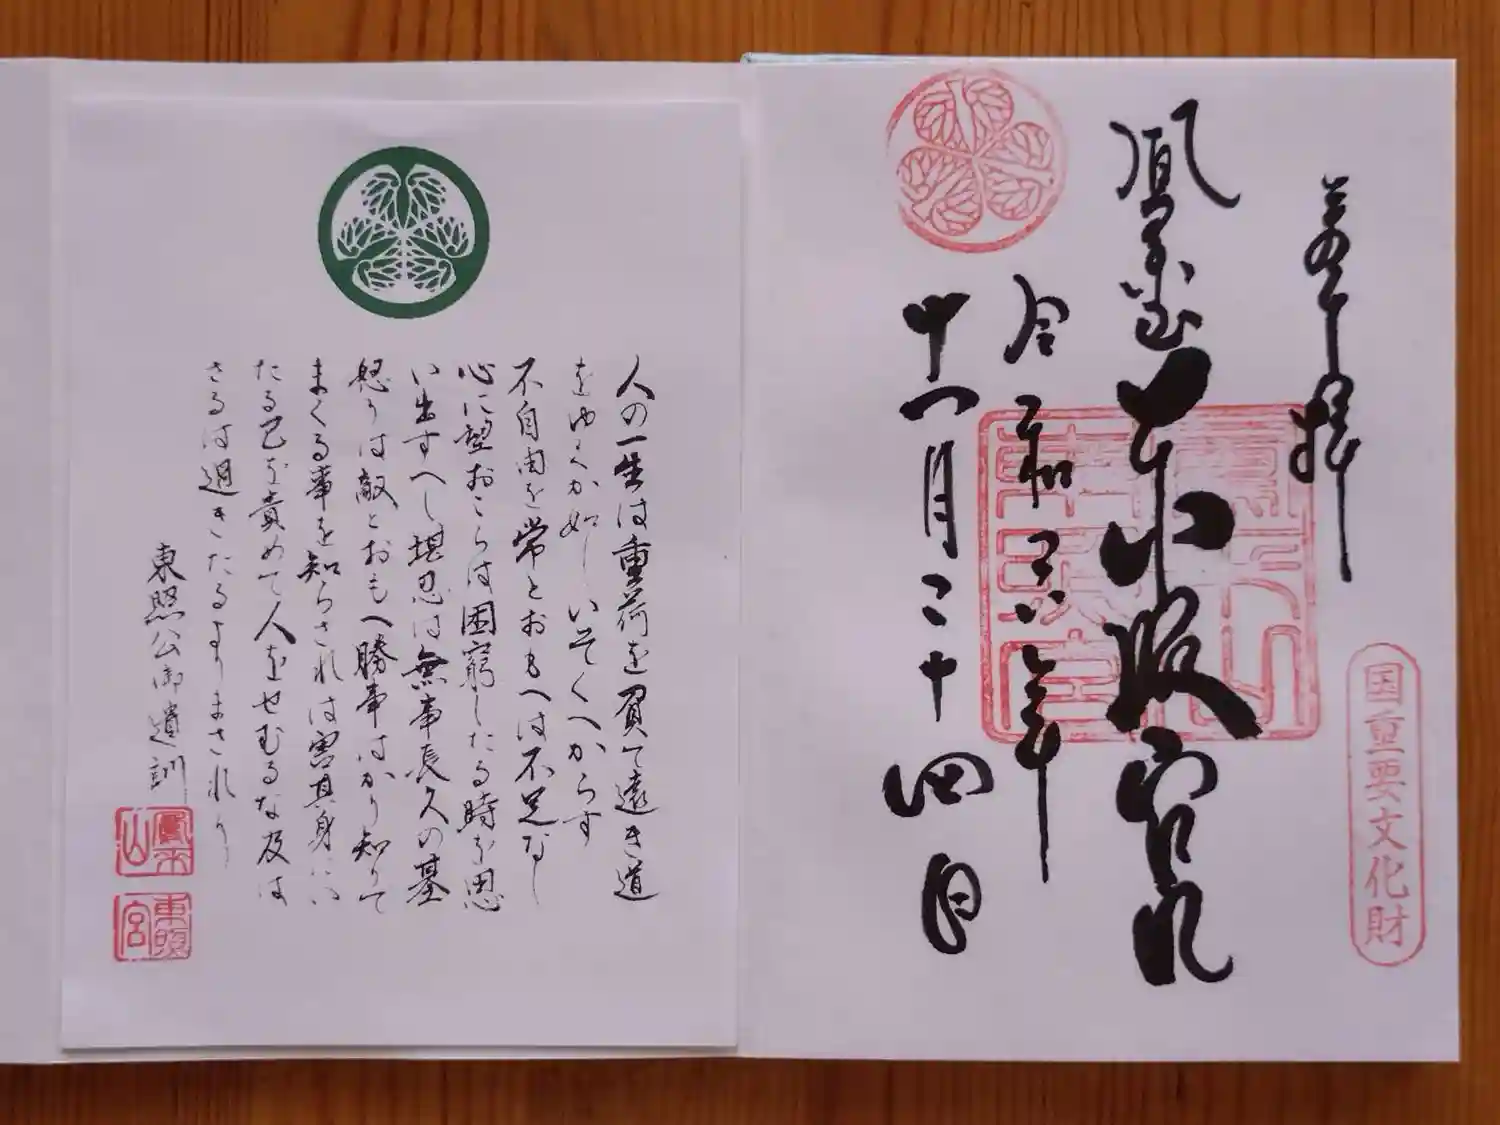 奉拝
国重要文化財
鳳来山東照宮
令和六年
十一月二十四日
人の一生は重荷を負て遠き道
をゆくか如しいそくへからす
不自由を常とおもへは不足なし
心に望おこらは困窮したる時を思
い出すへし堪忍は無事長久の基
怒りは敵とおもへ勝事はかり知りて
まくる事を知らされは害其身にい
たる己を責めて人をせむるな及は
さるは過きたるよりまされり
東照公御遺訓
鳳来山
東照宮